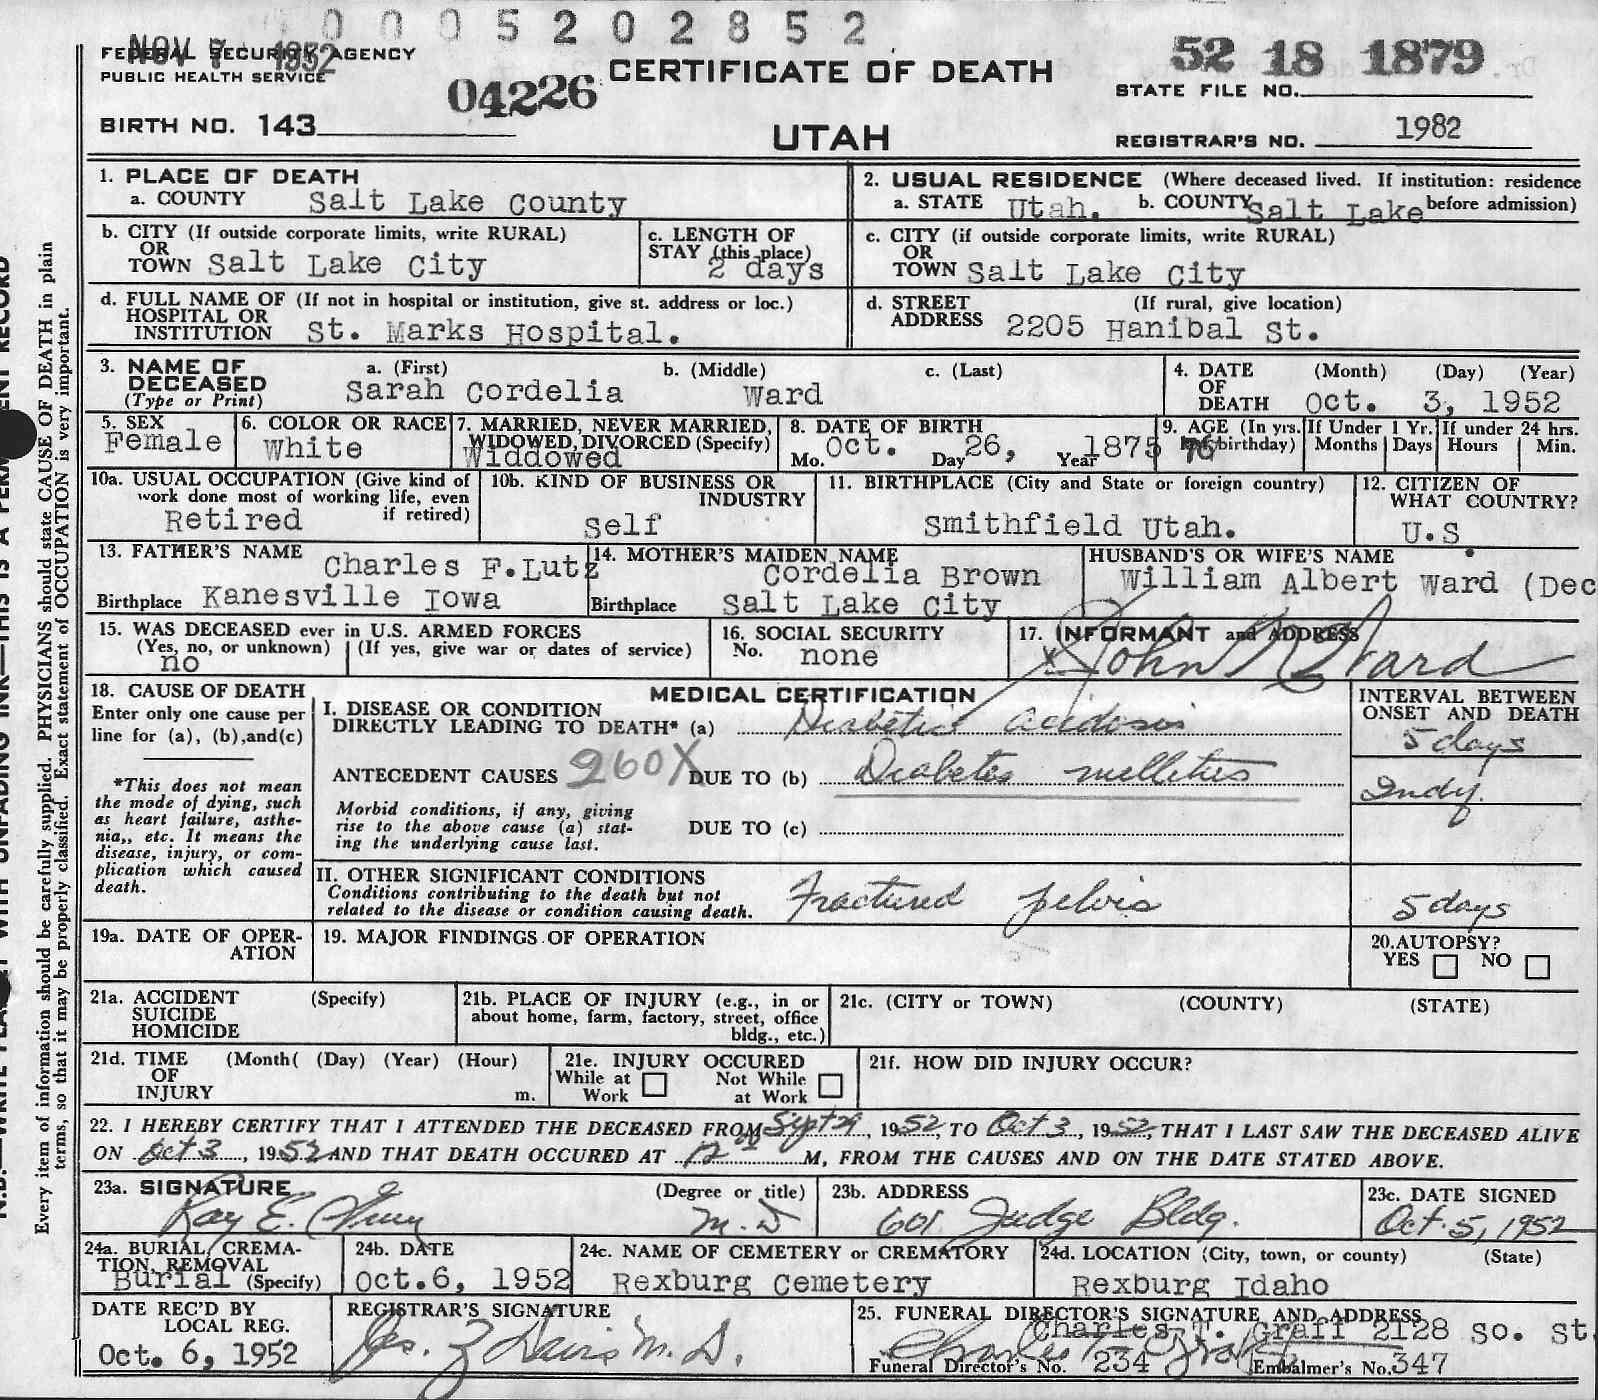 0005202852
NOV 7 1952
FEDERAL SECURITY AGENCY
PUBLIC HEALTH SERVICE
04226
CERTIFICATE OF DEATH
52 18 1879
STATE FILE NO.
BIRTH NO. 143
UTAH
REGISTRAR'S NO. 1982
1. PLACE OF DEATH
a. COUNTY Salt Lake County
2. USUAL RESIDENCE (Where deceased lived. If institution: residence before admission)
a. STATE Utah. b. COUNTY Salt Lake
b. CITY (If outside corporate limits, write RURAL)
OR
TOWN Salt Lake City
c. LENGTH OF
STAY (this place)
2 days
c. CITY (if outside corporate limits, write RURAL)
OR
TOWN Salt Lake City
d. FULL NAME OF (If not in hospital or institution, give st. address or loc.)
HOSPITAL OR
INSTITUTION St. Marks Hospital.
d. STREET (If rural, give location)
ADDRESS 2205 Hanibal St.
3. NAME OF
DECEASED
(Type or Print)
a. (First) b. (Middle) c. (Last)
Sarah Cordelia Ward
4. DATE (Month) (Day) (Year)
OF
DEATH Oct. 3, 1952
5. SEX
Female
6. COLOR OR RACE
White
7. MARRIED, NEVER MARRIED,
WIDOWED, DIVORCED (Specify)
Widdowed
8. DATE OF BIRTH
Mo. Oct. Day 26, Year 1875
9. AGE (In yrs. birthday) 76
If Under 1 Yr.
Months Days
If under 24 hrs.
Hours Min.
10a. USUAL OCCUPATION (Give kind of
work done most of working life, even
if retired)
Retired
10b. KIND OF BUSINESS OR
INDUSTRY
Self
11. BIRTHPLACE (City and State or foreign country)
Smithfield Utah.
12. CITIZEN OF
WHAT COUNTRY?
U.S.
13. FATHER'S NAME Charles F.Lutz
Birthplace Kanesville Iowa
14. MOTHER'S MAIDEN NAME
Cordelia Brown
Birthplace Salt Lake City
HUSBAND'S OR WIFE'S NAME
William Albert Ward (Dec
15. WAS DECEASED ever in U.S. ARMED FORCES
(Yes, no, or unknown) (If yes, give war or dates of service)
no
16. SOCIAL SECURITY
No. none
17. INFORMANT and ADDRESS
x John R Ward
18. CAUSE OF DEATH
Enter only one cause per
line for (a), (b),and(c)
*This does not mean
the mode of dying, such
as heart failure, asthe-
nia,, etc. It means the
disease, injury, or com-
plication which caused
death.
MEDICAL CERTIFICATION
I. DISEASE OR CONDITION
DIRECTLY LEADING TO DEATH* (a) Diabetic acidosis
ANTECEDENT CAUSES 260X DUE TO (b) Diabetes mellitus
Morbid conditions, if any, giving
rise to the above cause (a) stat-
ing the underlying cause last.
DUE TO (c)
INTERVAL BETWEEN
ONSET AND DEATH
5 days
Indf.
II. OTHER SIGNIFICANT CONDITIONS
Conditions contributing to the death but not
related to the disease or condition causing death.
Fractured pelvis
5 days
19a. DATE OF OPER-
ATION
19. MAJOR FINDINGS OF OPERATION
20.AUTOPSY?
YES NO
21a. ACCIDENT (Specify)
SUICIDE
HOMICIDE
21b. PLACE OF INJURY (e.g., in or
about home, farm, factory, street, office
bldg., etc.)
21c. (CITY or TOWN) (COUNTY) (STATE)
21d. TIME (Month( (Day) (Year) (Hour)
OF
INJURY m.
21e. INJURY OCCURED
While at Work
Not While at Work
21f. HOW DID INJURY OCCUR?
22. I HEREBY CERTIFY THAT I ATTENDED THE DECEASED FROM Sept 29, 1952, TO Oct 3, 1952, THAT I LAST SAW THE DECEASED ALIVE
ON Oct 3, 1952 AND THAT DEATH OCCURED AT 12 M, FROM THE CAUSES AND ON THE DATE STATED ABOVE.
23a. SIGNATURE (Degree or title)
Ray E. M.D
23b. ADDRESS
601 Judge Bldg.
23c. DATE SIGNED
Oct. 5, 1952
24a. BURIAL, CREMA-
TION, REMOVAL
Burial (Specify)
24b. DATE
Oct.6, 1952
24c. NAME OF CEMETERY or CREMATORY
Rexburg Cemetery
24d. LOCATION (City, town, or county) (State)
Rexburg Idaho
DATE REC'D BY
LOCAL REG.
Oct. 6, 1952
REGISTRAR'S SIGNATURE
Jas. Z Davis M.D.
25. FUNERAL DIRECTOR'S SIGNATURE AND ADDRESS
Charles T. Graff 2128 So. St
Charles T Graff
Funeral Director's No. 234 Embalmer's No. 347
Every item of information should be carefully supplied. PHYSICIANS should state CAUSE OF DEATH in plain
terms, so that it may be properly classified. Exact statement of OCCUPATION is very important.